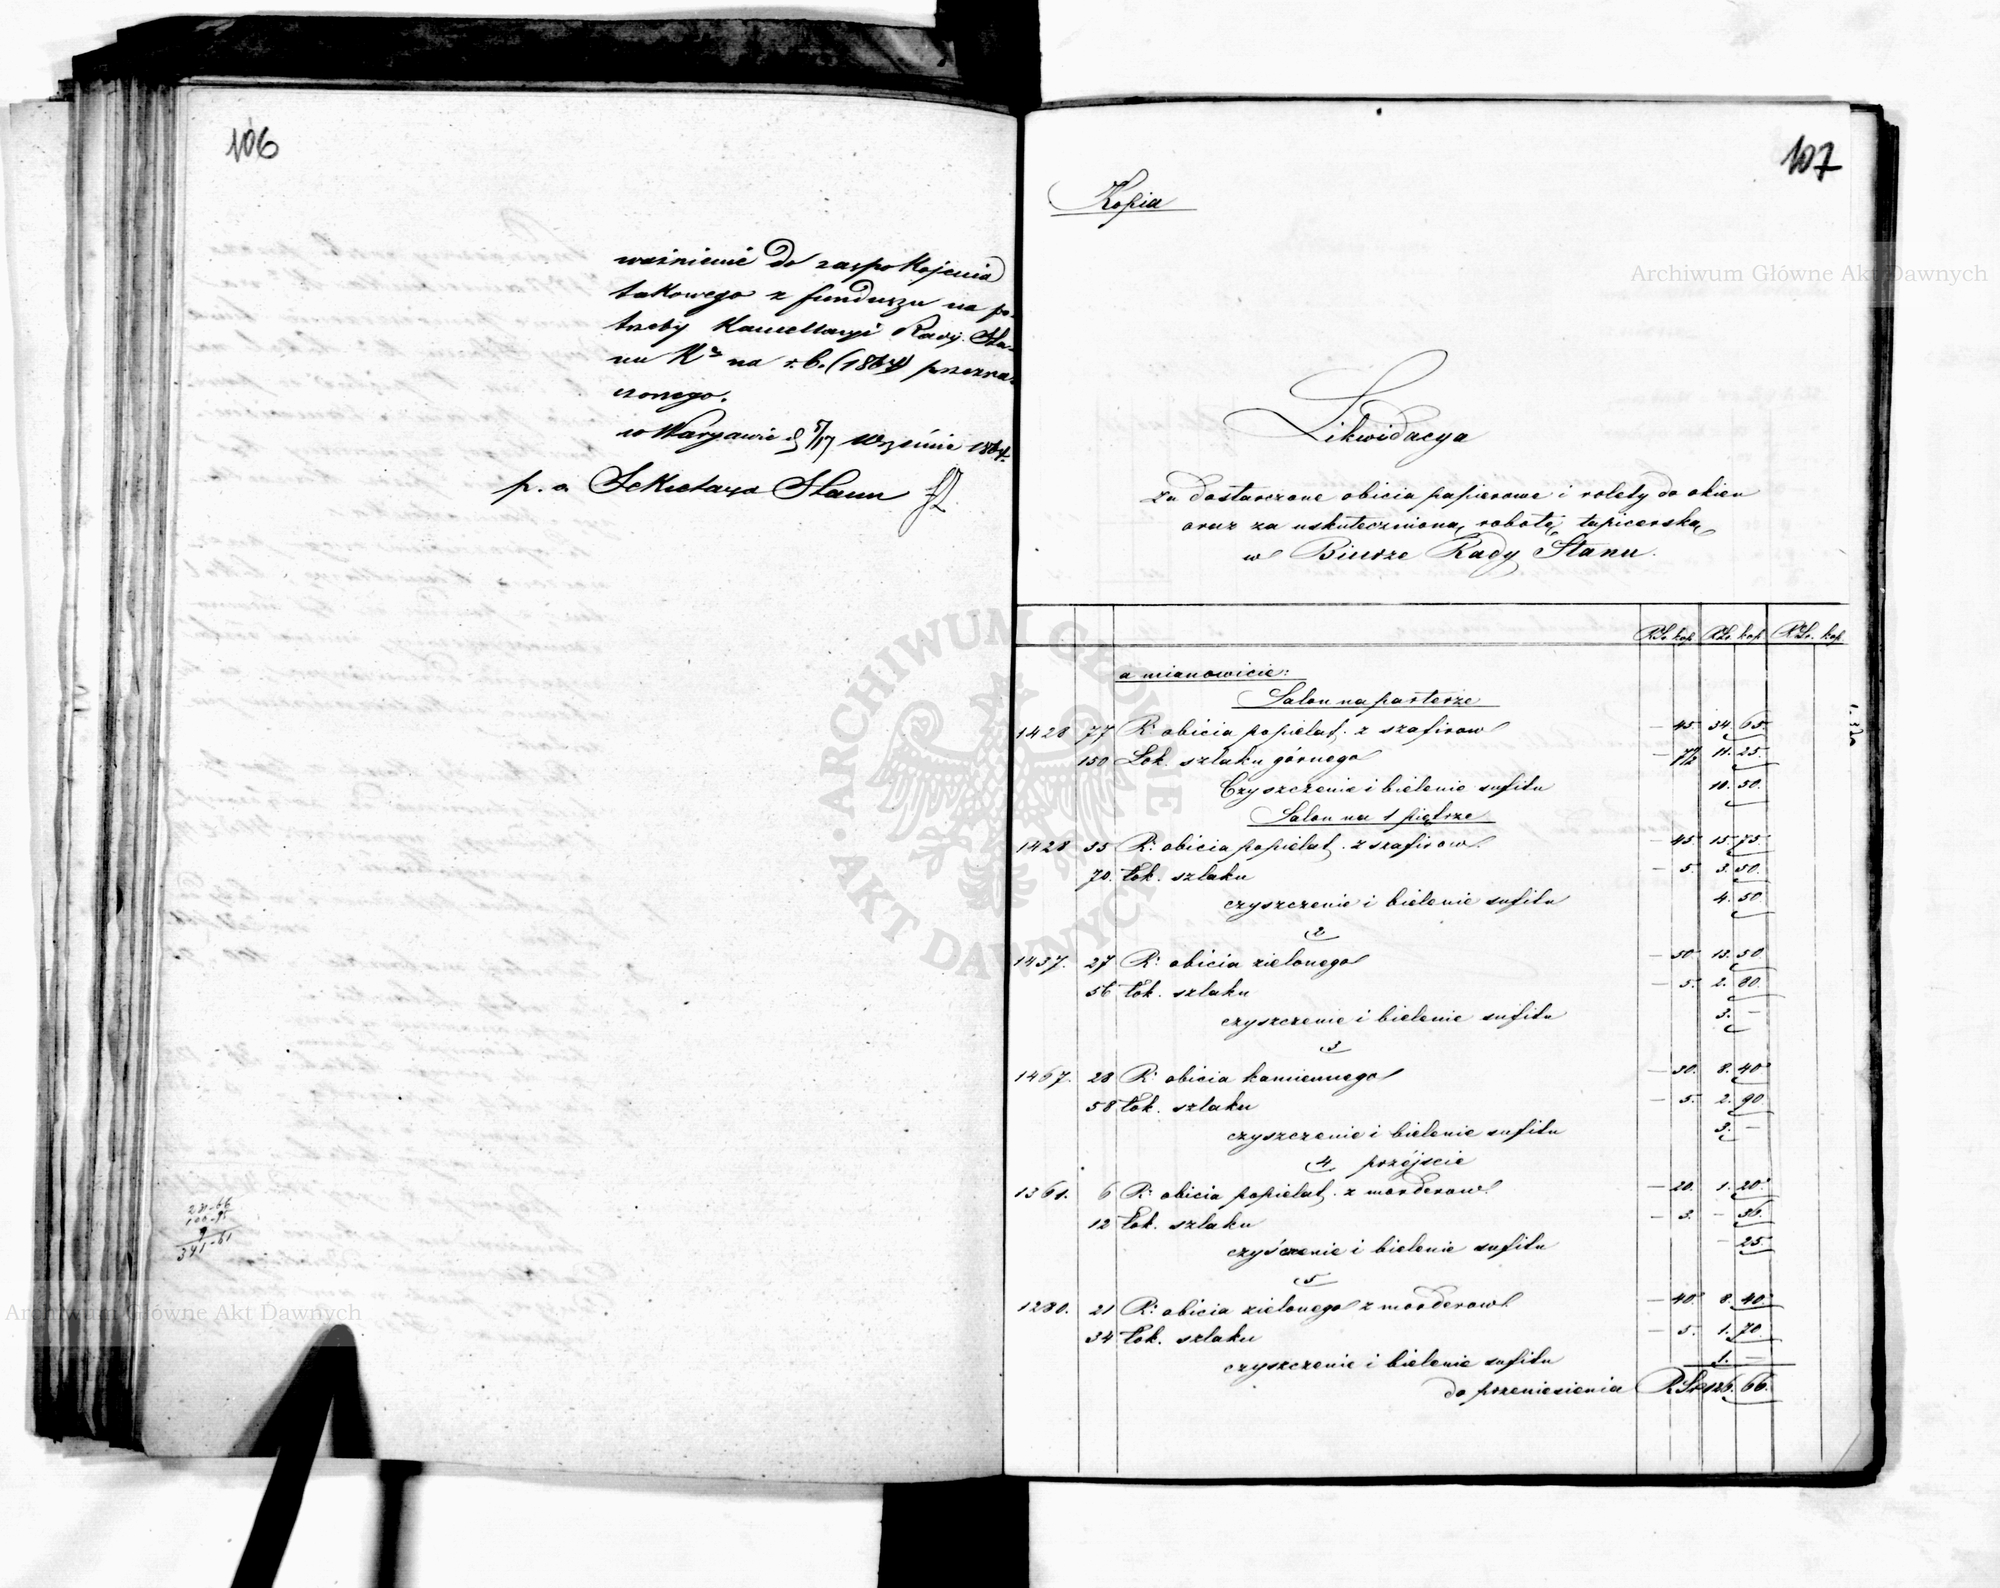 106
ważnienie do zaspokojenia
takowego z funduszu na po-
trzeby Kancellaryi Rady Sta-
nu Kr na r.b. (1864) przezna-
czonego.
w Warszawie d 5/17 Września 1864.
p. o. Sekretarza Stanu
341-61
107
Kopia
Likwidacya
za dostarczone obicia papierowe i rolety do okien
oraz za uskutecznioną robotę tapicerską
w Biurze Rady Stanu.
RSr. kop. RSr. kop. RSr. kop.
a mianowicie:
Salon na parterze
1428 77 R: obicia popielat. z szafirow. — 45. 34. 65.
150 Łok. szlaku górnego — 7½ 11. 25.
Czyszczenie i bielenie sufitu 10. 50.
Salon na 1 piętrze
1428 35 R: obicia popielat. z szafirow. — 45. 15. 75.
70. Łok. szlaku — 5. 3. 50.
czyszczenie i bielenie sufitu 4. 50.
2
1437. 27 R: obicia zielonego — 50. 13. 50.
56 Łok. szlaku — 5. 2. 80.
czyszczenie i bielenie sufitu 3. —
3
1467. 28 R: obicia kamiennego — 30. 8. 40.
58 Łok. szlaku — 5. 2. 90.
czyszczenie i bielenie sufitu 3. —
4 przejście
1361. 6 R: obicia popielat. z morderow. — 20. 1. 20.
12 Łok. szlaku — 3. — 36.
czyśczenie i bielenie sufitu — 25.
5
1280. 21 R: obicia zielonego z morderow. — 40. 8. 40.
34 Łok. szlaku — 5. 1. 70.
czyszczenie i bielenie sufitu 1. —
do przeniesienia RSr 126. 66.
Archiwum Główne Akt Dawnych
ARCHIWUM GŁÓWNE AKT DAWNYCH
Archiwum Główne Akt Dawnych